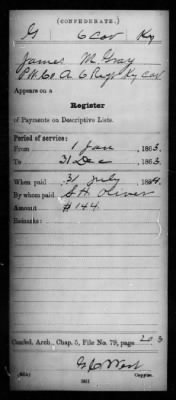 (CONFEDERATE.)
G 6 Cav Ky
James M. Gray
Pvt. Co. A 6 Regt Ky Cav
Appears on a
Register
of Payments on Descriptive Lists.
Period of service:
From 1 Jan, 1863
To 31 Dec, 1863.
When paid 31 July, 1864.
By whom paid S. H. Oliver
Amount $144
Remarks:
Confed. Arch., Chap. 5, File No. 79, page 203
West
Copyist.